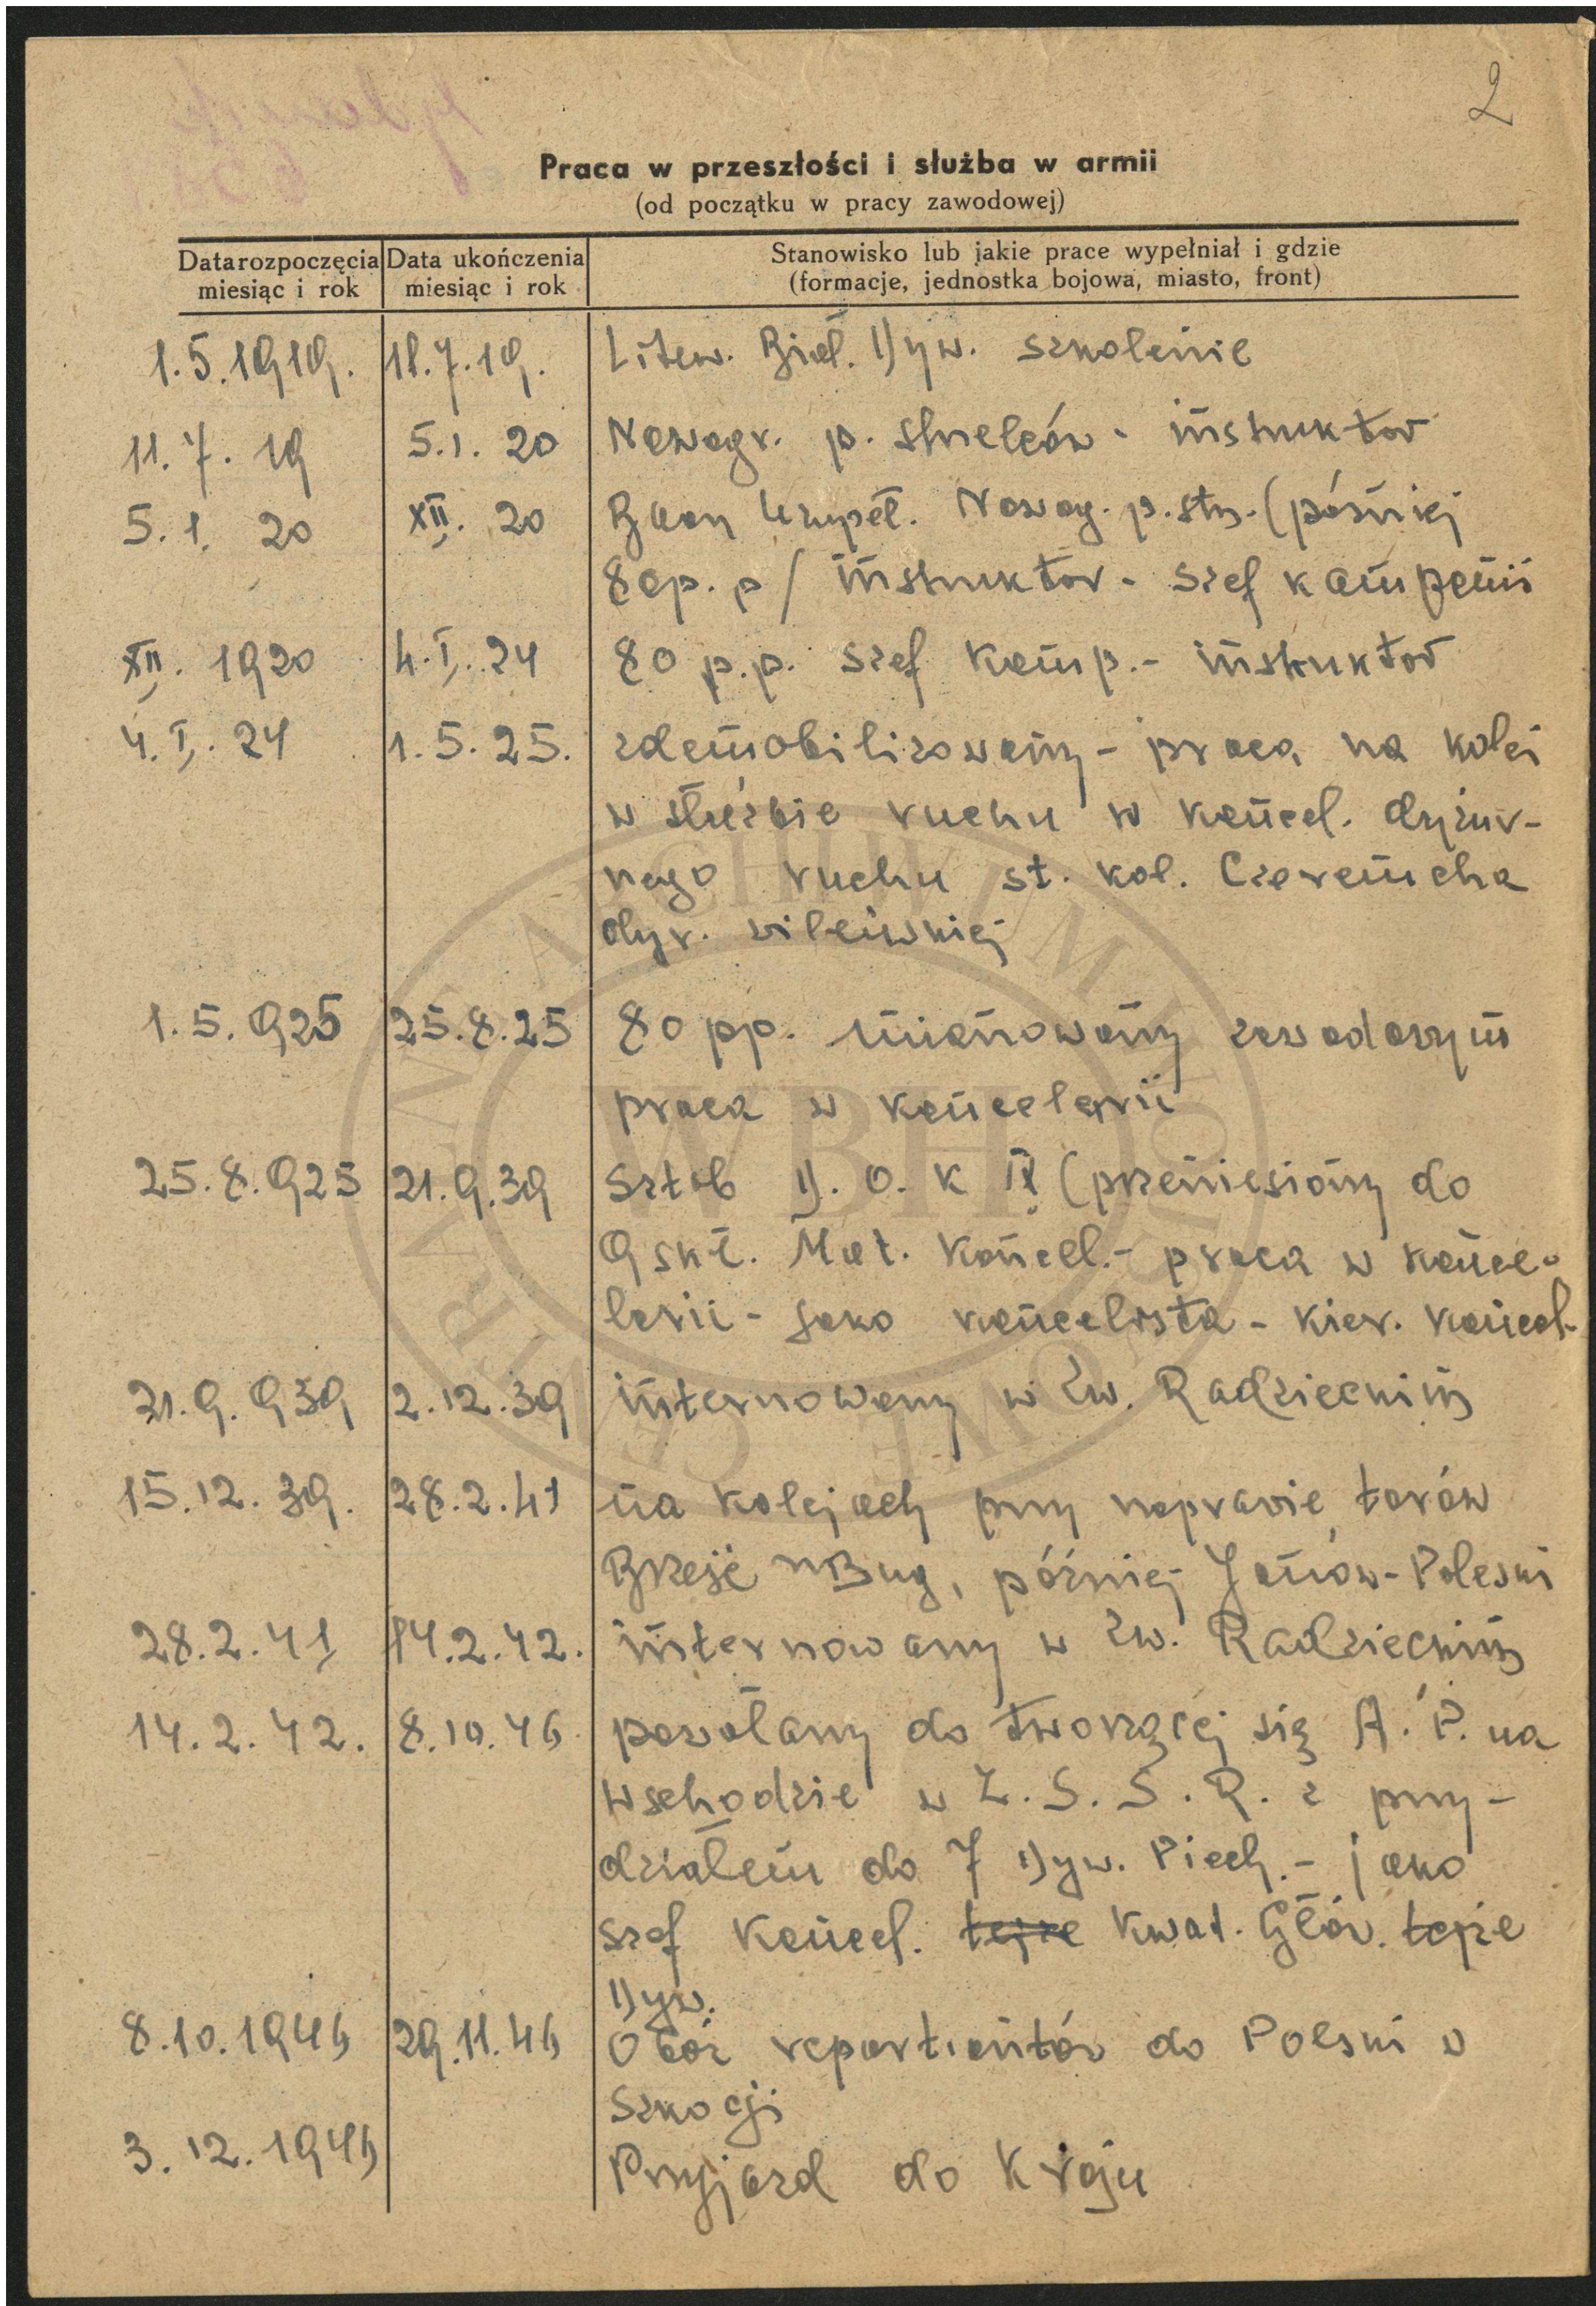 2
Praca w przeszłości i służba w armii
(od początku w pracy zawodowej)
Data rozpoczęcia miesiąc i rok | Data ukończenia miesiąc i rok | Stanowisko lub jakie prace wypełniał i gdzie
(formacje, jednostka bojowa, miasto, front)
1.5.1919. | 11.7.19. | Litew. Biał. Dyw. szkolenie
11.7.19 | 5.1.20 | Nowogr. p. strzelców - instruktor
5.1.20 | XII.20 | Baon Uzupeł. Nowog. p. strz. (później
80p.p / instruktor - szef kompanii
XII.1920 | 4.I.24 | 80 p.p. szef komp. - instruktor
4.I.24 | 1.5.25. | zdemobilizowany - praca na kolei
w służbie ruchu w kancel. dyżur-
nego ruchu st. kol. Czeremcha
dyr. wileńskiej
1.5.925 | 25.8.25 | 80 pp. mianowany zawodowym
praca w kancelarii
25.8.925 | 21.9.39 | Sztab D.O.K IX (przeniesiony do
9 skł. Mat. Kancel. - praca w kance-
larii - jako kancelista - kier. kancel.
21.9.939 | 2.12.39 | internowany w Zw. Radzieckim
15.12.39. | 28.2.41 | na kolejach przy naprawie torów
Brześć n/Bug, później Janów-Poleski
28.2.41 | 14.2.42. | internowany w Zw. Radzieckim
14.2.42. | 8.10.46 | powołany do tworzącej się A.P. na
wschodzie w Z.S.S.R. z przy-
działem do 7 Dyw. Piech. - jako
szef Kancel. tejże Kwat. Głów. tejże
Dyw.
8.10.1946 | 29.11.46 | Obóz repartiantów do Polski w
Szkocji
3.12.1946 | Przyjazd do Kraju
CENTRALNE ARCHIWUM WOJSKOWE
WBH